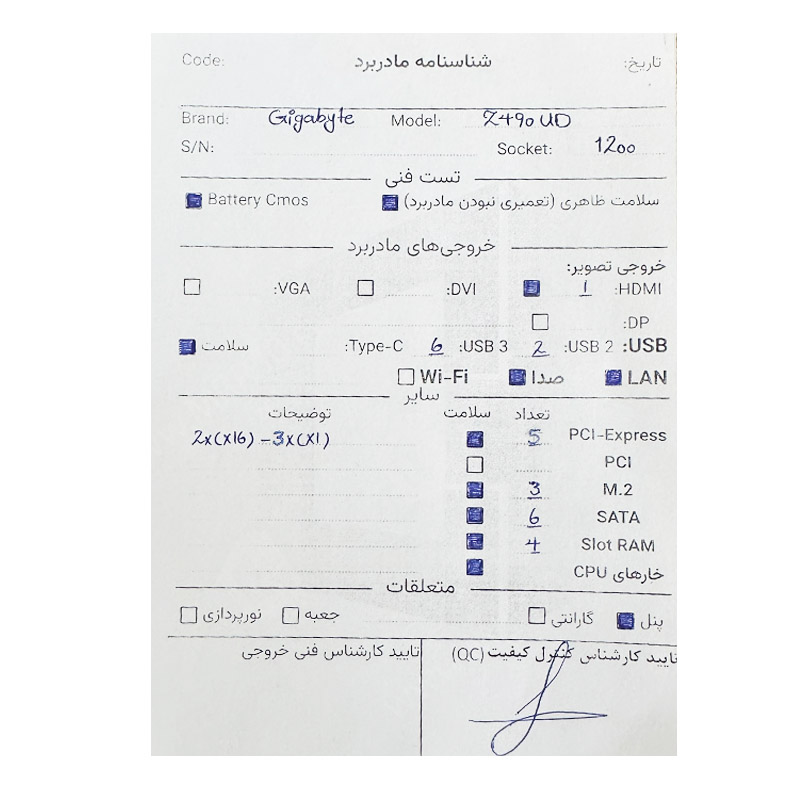 تاریخ: شناسنامه مادربرد Code:
Brand: Gigabyte Model: Z490 UD
S/N: Socket: 1200
تست فنی
سلامت ظاهری (تعمیری نبودن مادربرد) Battery Cmos
خروجی‌های مادربرد
خروجی تصویر:
HDMI: 1 DVI: VGA:
DP:
USB: USB 2: 2 USB 3: 6 Type-C: سلامت
LAN صدا Wi-Fi
سایر
تعداد سلامت توضیحات
PCI-Express 5 2x(X16) - 3x(X1)
PCI
M.2 3
SATA 6
Slot RAM 4
خارهای CPU
متعلقات
پنل گارانتی جعبه نورپردازی
تایید کارشناس کنترل کیفیت (QC) تایید کارشناس فنی خروجی